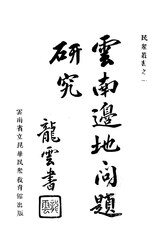 民眾叢書之一
雲南邊地問題
研究
龍雲書
雲南省立昆華民眾教育館出版